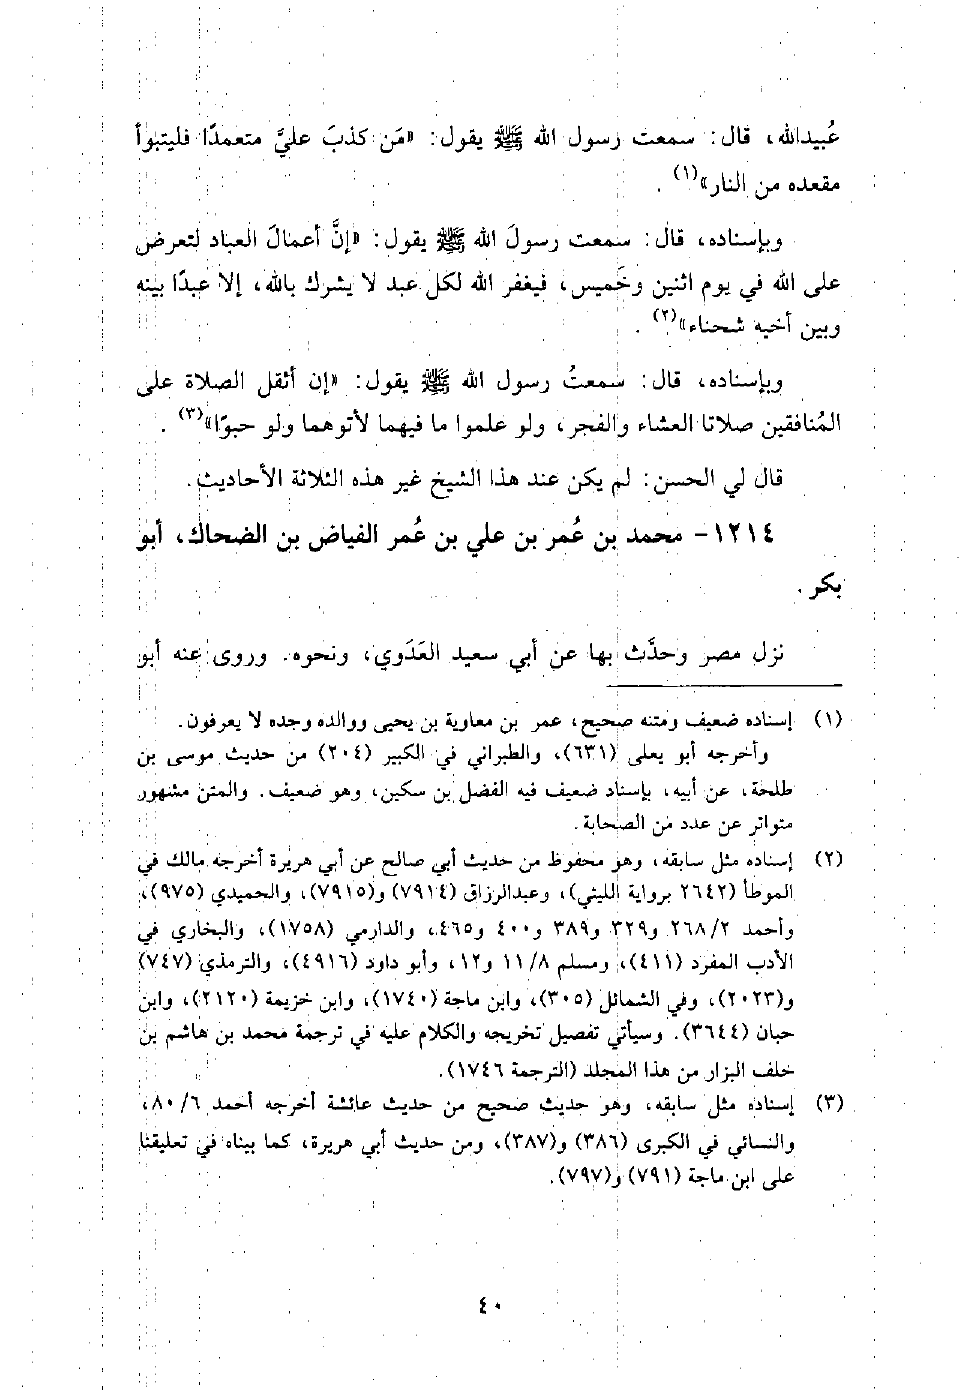 عُبيدالله، قال: سمعت رسول الله ﷺ يقول: «مَن كذبَ عليَّ متعمدًا فليتبوأ
مقعده من النار»(١) .
وبإسناده، قال: سمعت رسولَ الله ﷺ يقول: «إنَّ أعمالَ العباد لتعرض
على الله في يوم اثنين وخَميس، فيغفر الله لكل عبد لا يشرك بالله، إلا عبدًا بينه
وبين أخيه شحناء»(٢) .
وبإسناده، قال: سمعتُ رسول الله ﷺ يقول: «إن أثقل الصلاة على
المُنافقين صلاتا العشاء والفجر، ولو علموا ما فيهما لأتوهما ولو حبوًا»(٣) .
قال لي الحسن: لم يكن عند هذا الشيخ غير هذه الثلاثة الأحاديث.
١٢١٤- محمد بن عُمر بن علي بن عُمر الفياض بن الضحاك، أبو
بكر.
نزل مصر وحدَّث بها عن أبي سعيد العَدَوي، ونحوه. وروى عنه أبو
(١) إسناده ضعيف ومتنه صحيح، عمر بن معاوية بن يحيى ووالده وجده لا يعرفون.
وأخرجه أبو يعلى (٦٣١)، والطبراني في الكبير (٢٠٤) من حديث موسى بن
طلحة، عن أبيه، بإسناد ضعيف فيه الفضل بن سكين، وهو ضعيف. والمتن مشهور
متواتر عن عدد من الصحابة.
(٢) إسناده مثل سابقه، وهو محفوظ من حديث أبي صالح عن أبي هريرة أخرجه مالك في
الموطأ (٢٦٤٢ برواية الليثي)، وعبدالرزاق (٧٩١٤) و(٧٩١٥)، والحميدي (٩٧٥)،
وأحمد ٢/ ٢٦٨ و٣٢٩ و٣٨٩ و٤٠٠ و٤٦٥، والدارمي (١٧٥٨)، والبخاري في
الأدب المفرد (٤١١)، ومسلم ٨/ ١١ و١٢، وأبو داود (٤٩١٦)، والترمذي (٧٤٧)
و(٢٠٢٣)، وفي الشمائل (٣٠٥)، وابن ماجة (١٧٤٠)، وابن خزيمة (٢١٢٠)، وابن
حبان (٣٦٤٤). وسيأتي تفصيل تخريجه والكلام عليه في ترجمة محمد بن هاشم بن
خلف البزار من هذا المجلد (الترجمة ١٧٤٦).
(٣) إسناده مثل سابقه، وهو حديث صحيح من حديث عائشة أخرجه أحمد ٦/ ٨٠،
والنسائي في الكبرى (٣٨٦) و(٣٨٧)، ومن حديث أبي هريرة، كما بيناه في تعليقنا
على ابن ماجة (٧٩١) و(٧٩٧).
٤٠